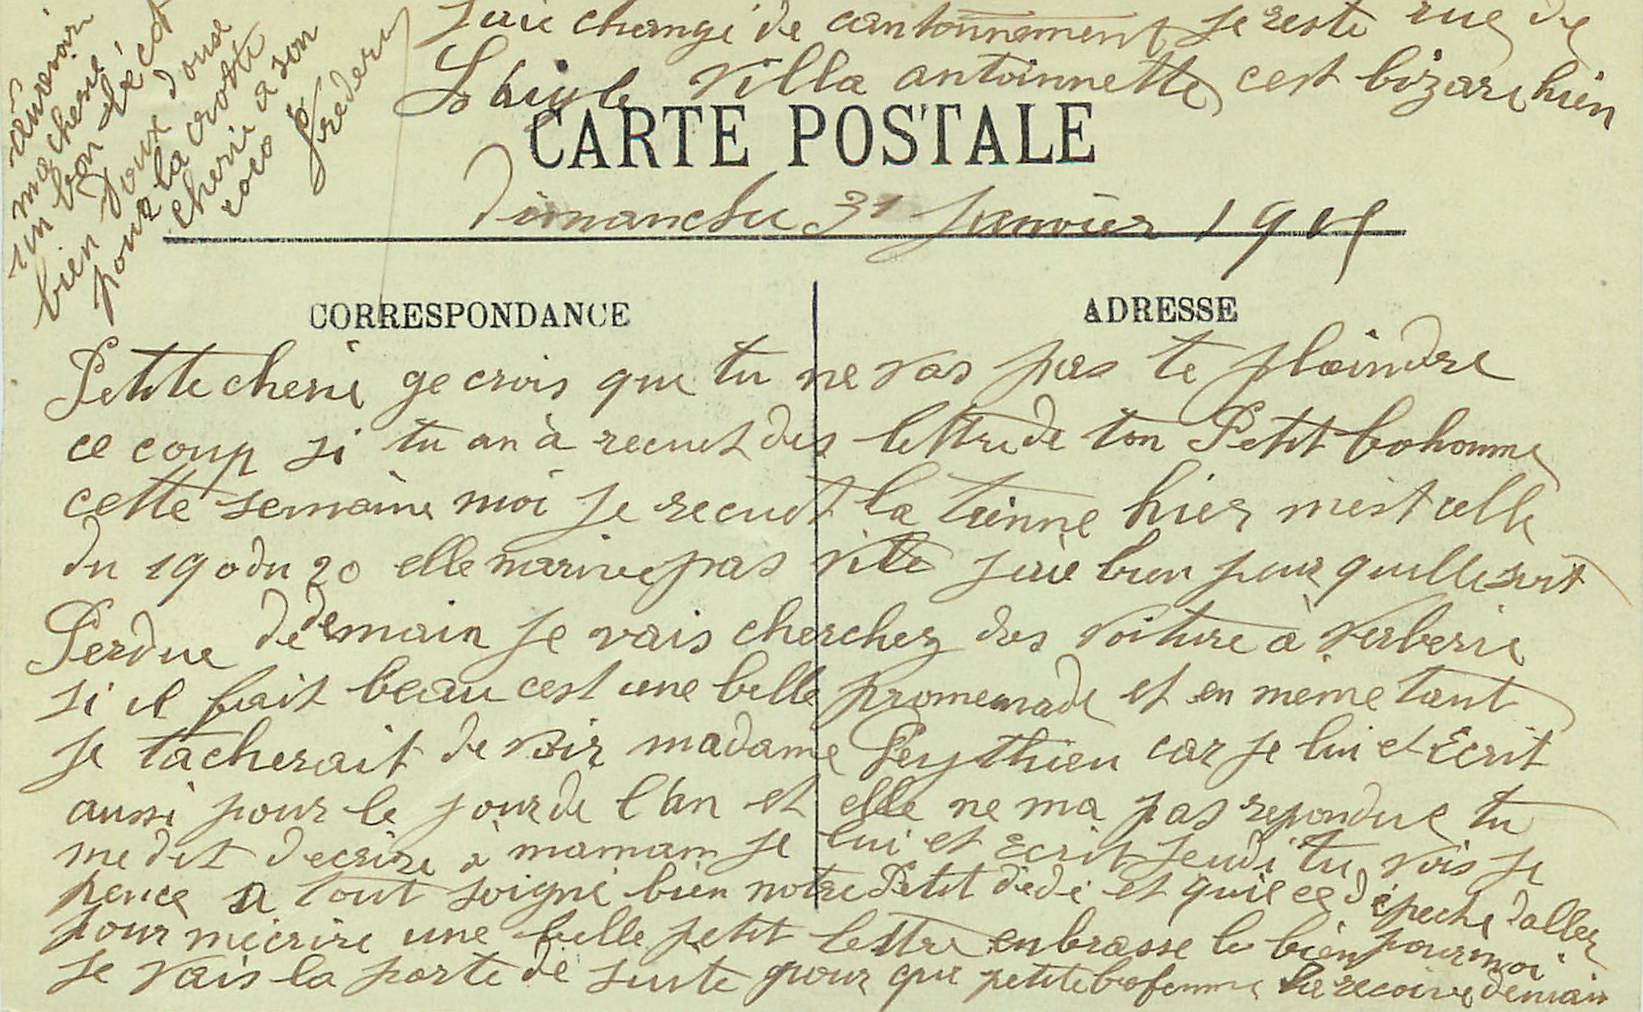 jaie changé de cantonnement je reste rue de
Villa antoinnette cest bizare hien
CARTE POSTALE
Dimanche 31 Janvier 1915
CORRESPONDANCE
ADRESSE
Petite cherie ge crois que tu ne vas pas te plaindre
ce coup si tu an à recuet des lettre de ton Petit bohomme
cette semaine moi je recuet la tienne hier mest celle
du 19 o du 20 elle marive pas vite jaie bien peur quelle soit
Perdue demain je vais cherchez des voiture à Verberie
si il fait beau cest une belle promenade et en même tant
je tacherait de voir madame Peythieu car je lui et Ecrit
aussi pour le jour de l'an et elle ne ma pas repondue tu
me dit decrire à maman je lui et Ecrit jeudi tu vois je
pence a tout soigne bien notre Petit dédé et quil ce dépeche daller
pour mécrire une belle petit lettre enbrasse le bien pour moi
je vais la porte de suite pour que petite bofemme la recoive demain
aurevoir
ma cherie
un bon
bien doux
pour la croute
cherie a son
coco